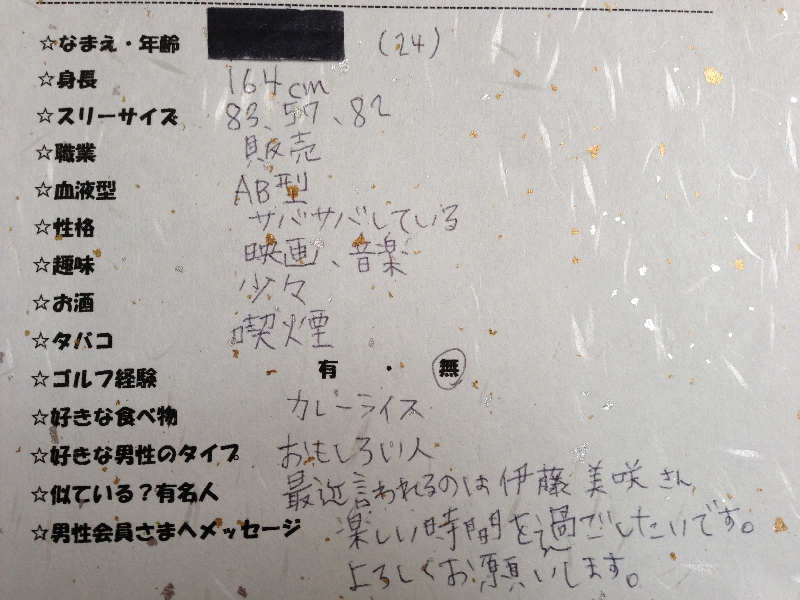 ☆なまえ・年齢 (24)
☆身長 164cm
☆スリーサイズ 83、57、82
☆職業 販売
☆血液型 AB型
☆性格 サバサバしている
☆趣味 映画、音楽
☆お酒 少々
☆タバコ 喫煙
☆ゴルフ経験 有 ・ 無
☆好きな食べ物 カレーライス
☆好きな男性のタイプ おもしろい人
☆似ている？有名人 最近言われるのは伊藤美咲さん
☆男性会員さまへメッセージ 楽しい時間を過ごしたいです。
よろしくお願いします。